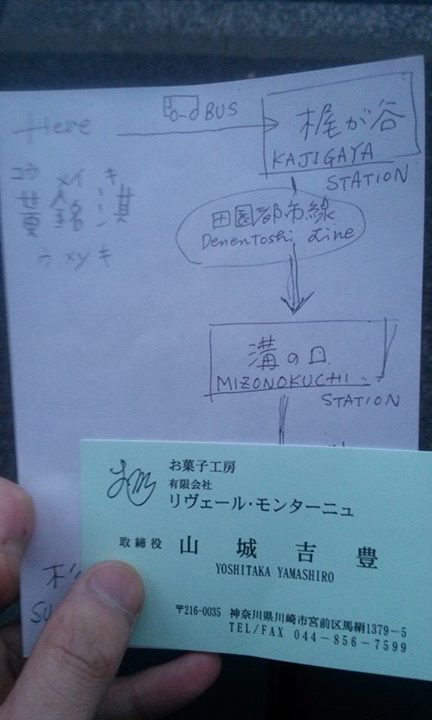 Here
BUS
梶が谷
KAJIGAYA
STATION
コウ メイ キ
黄銘淇
田園都市線
Denentoshi Line
溝の口
MIZONOKUCHI
STATION
お菓子工房
有限会社
リヴェール・モンターニュ
取締役 山城吉豊
YOSHITAKA YAMASHIRO
〒216-0035 神奈川県川崎市宮前区馬絹1379-5
TEL/FAX 044-856-7599